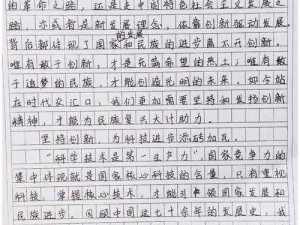 的革命之路，还是中国特色社会主义发展之
路，亦或者是新发展理念，依靠创新驱动发展。
背后都体现了国家和民族的进步离不开创新。
的发展
唯有敢于创新，才是充满希望的热土；唯有敢
于追梦的民族，才能创造光明的未来，如今站
在时代交汇口，我们更加需要坚持和发扬创新
精神，才能为民族复兴大计助力。
坚持创新，为科技进步添砖加瓦。
“科学技术是第一生产力”国家竞争力的
集中体现就是国家核心科技的含量，只有重视
科技，掌握核心技术，才能引领国家发展和
民族进步。回顾中国这七十余年的发展史，我